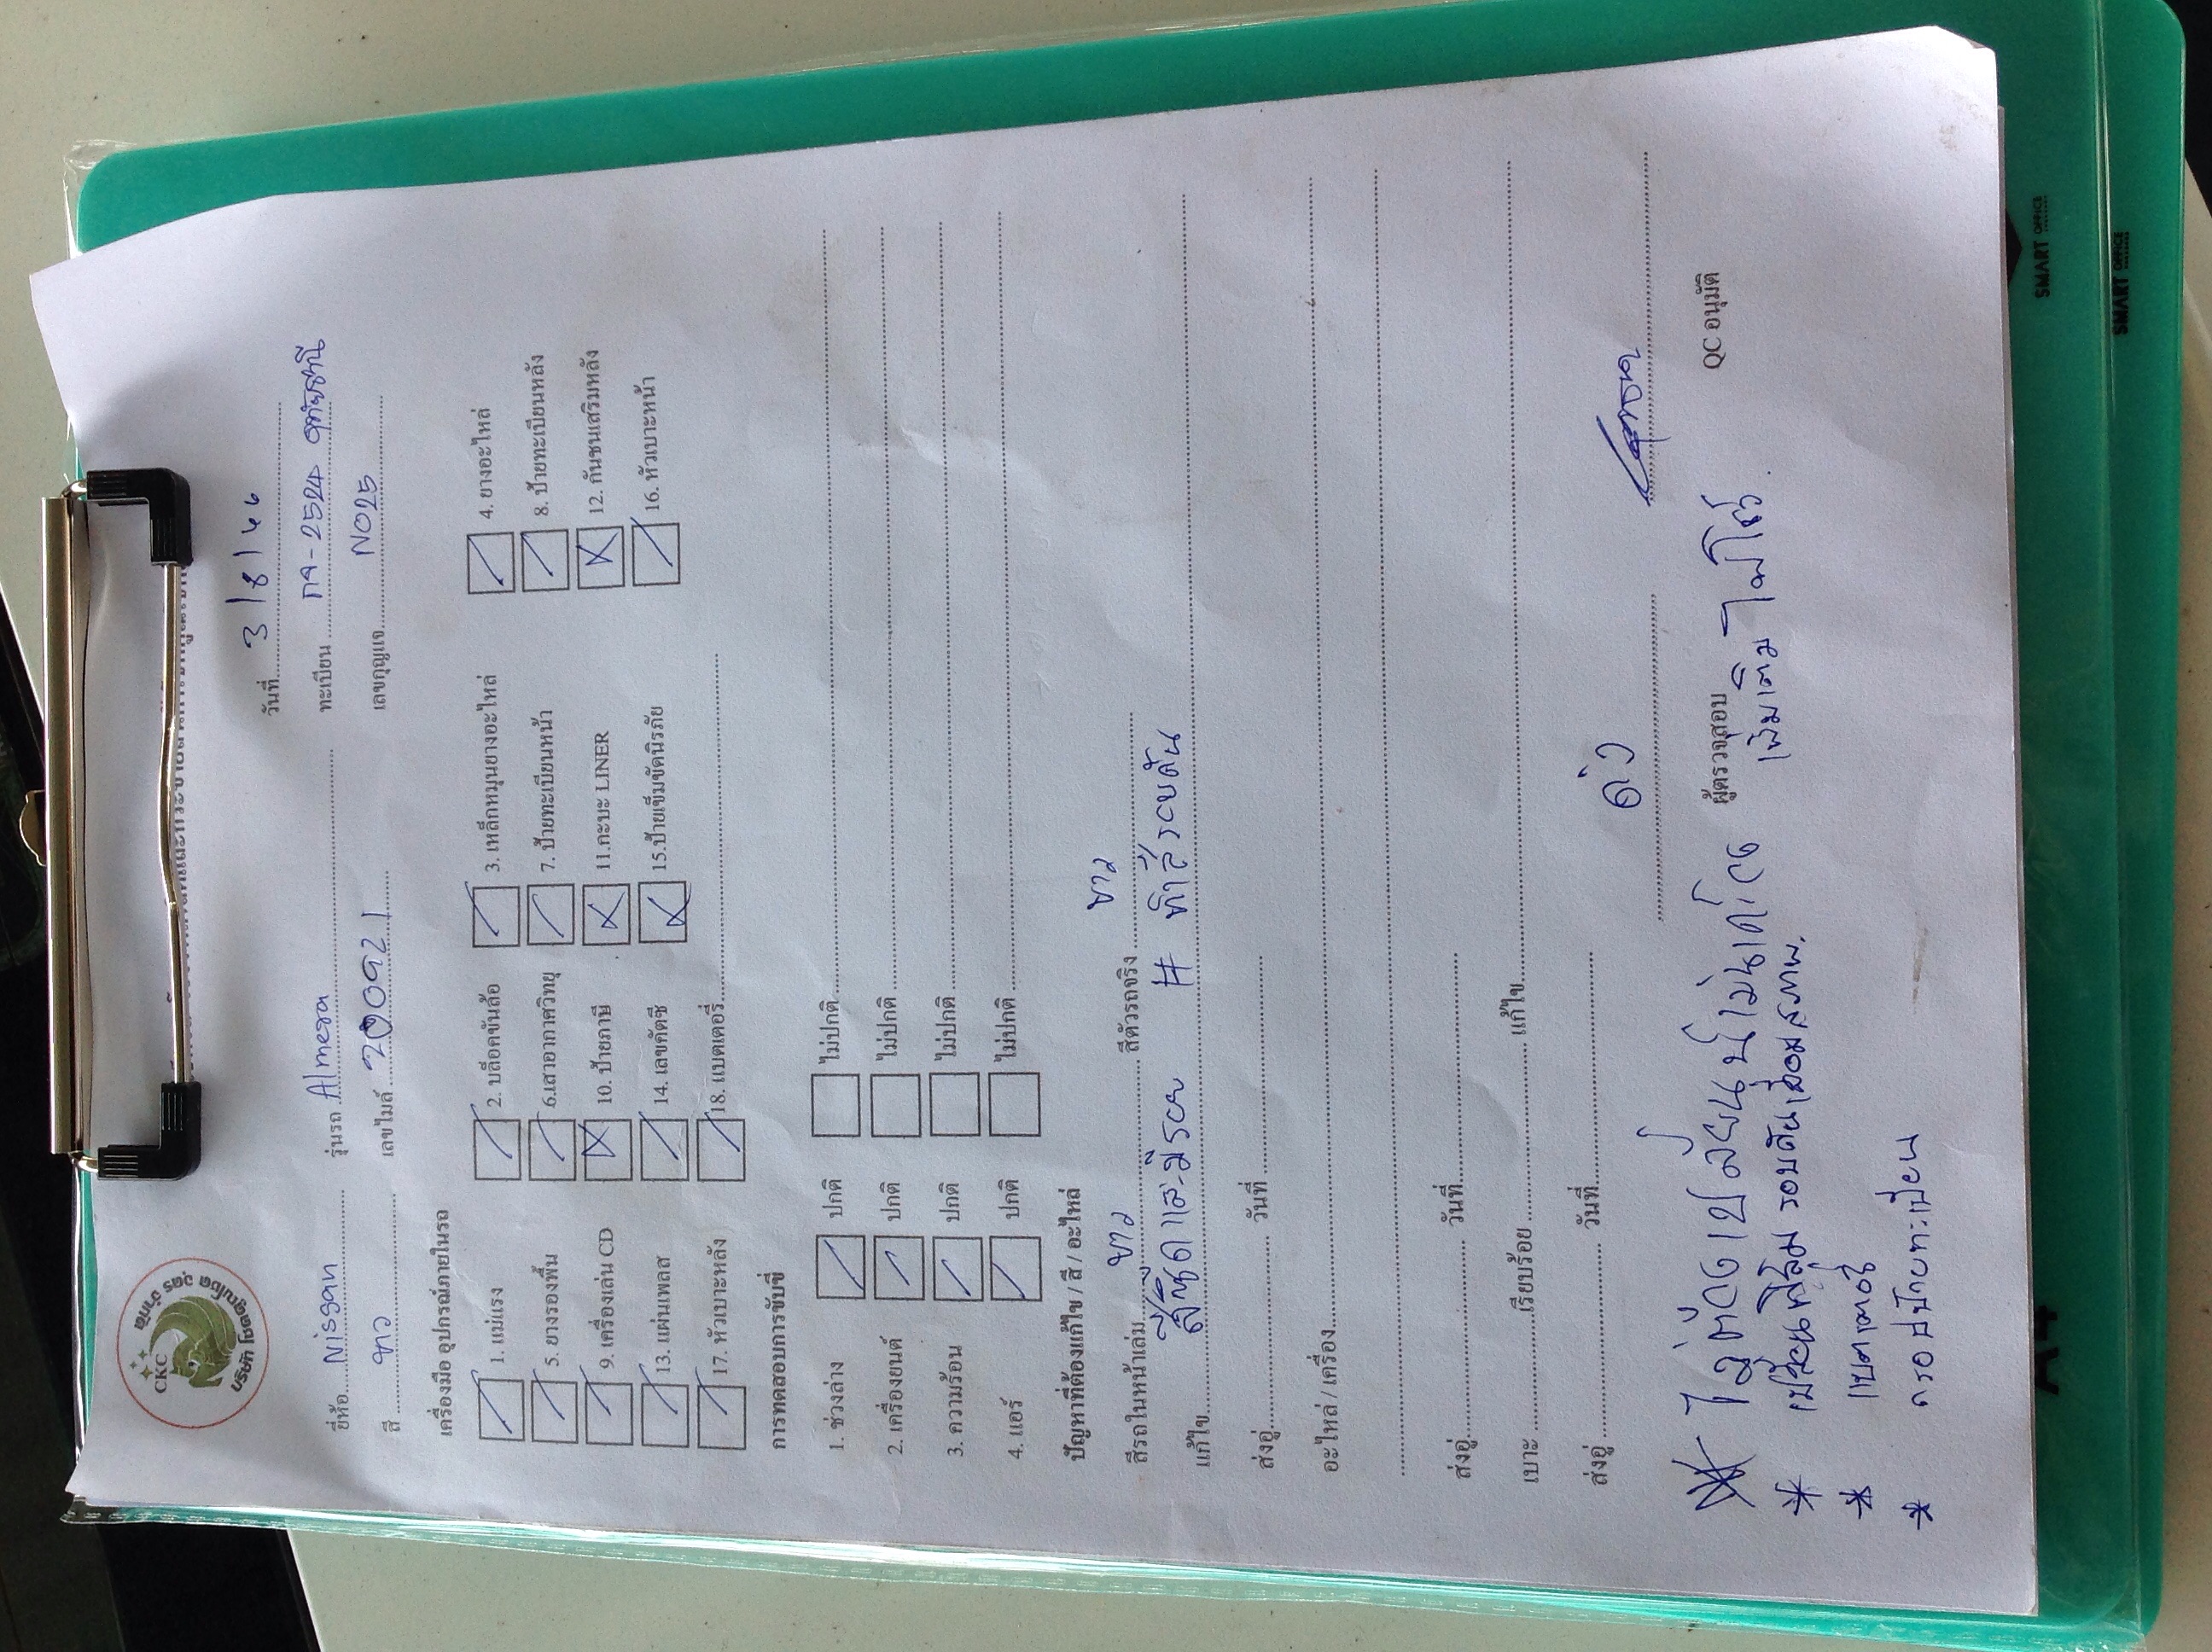 CKC
วันที่ 3/8/66
ยี่ห้อ Nissan รุ่นรถ Almera ทะเบียน กจ-2524 อุทัยธานี
สี ขาว เลขไมล์ 200921 เลขกุญแจ NO25
เครื่องมือ อุปกรณ์ภายในรถ
1. แม่แรง 2. บล๊อคขันล้อ 3. เหล็กหมุนยางอะไหล่ 4. ยางอะไหล่
5. ยางรองพื้น 6.เสาอากาศวิทยุ 7. ป้ายทะเบียนหน้า 8. ป้ายทะเบียนหลัง
9. เครื่องเล่น CD 10. ป้ายภาษี 11.กะบะ LINER 12. กันชนเสริมหลัง
13. แผ่นเพลส 14. เลขคัตซี 15.ป้ายเข็มขัดนิรภัย 16. หัวเบาะหน้า
17. หัวเบาะหลัง 18. แบตเตอรี่
การทดสอบการขับขี่
1. ช่วงล่าง ปกติ ไม่ปกติ
2. เครื่องยนต์ ปกติ ไม่ปกติ
3. ความร้อน ปกติ ไม่ปกติ
4. แอร์ ปกติ ไม่ปกติ
ปัญหาที่ต้องแก้ไข / สี / อะไหล่
สีรถในหน้าเล่ม ขาว สีตัวรถจริง ขาว
แก้ไข สีซีดและมีรอย # ทำสีรอบคัน
ส่งอู่ วันที่
อะไหล่ / เครื่อง
ส่งอู่ วันที่
เบาะ เรียบร้อย แก้ไข
ส่งอู่ วันที่
ผู้ตรวจสอบ QC อนุมัติ
* เปลี่ยนฟิล์ม รอบคันเสื่อมสภาพ. เพิ่มเติม
* แบตเตอรี่
* กรอบป้ายทะเบียน
SMART OFFICE
SMART OFFICE
A4